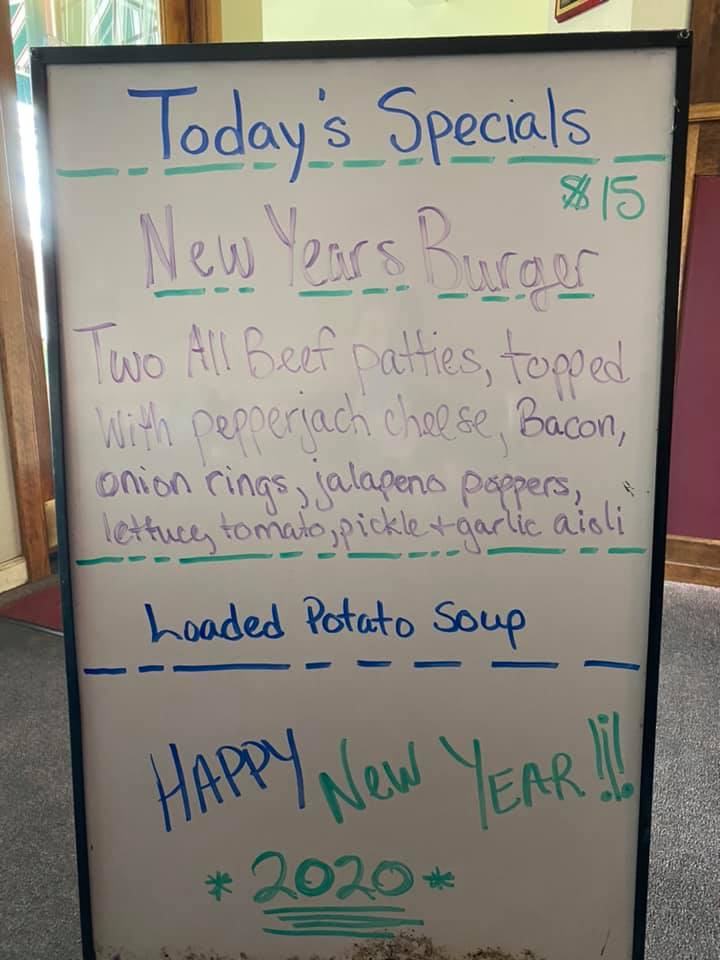 Today's Specials
$15
New Years Burger
Two All Beef patties, topped
with pepperjach cheese, Bacon,
onion rings, jalapeno poppers,
lettuce, tomato, pickle + garlic aioli
Loaded Potato Soup
HAPPY New YEAR!!!
* 2020 *